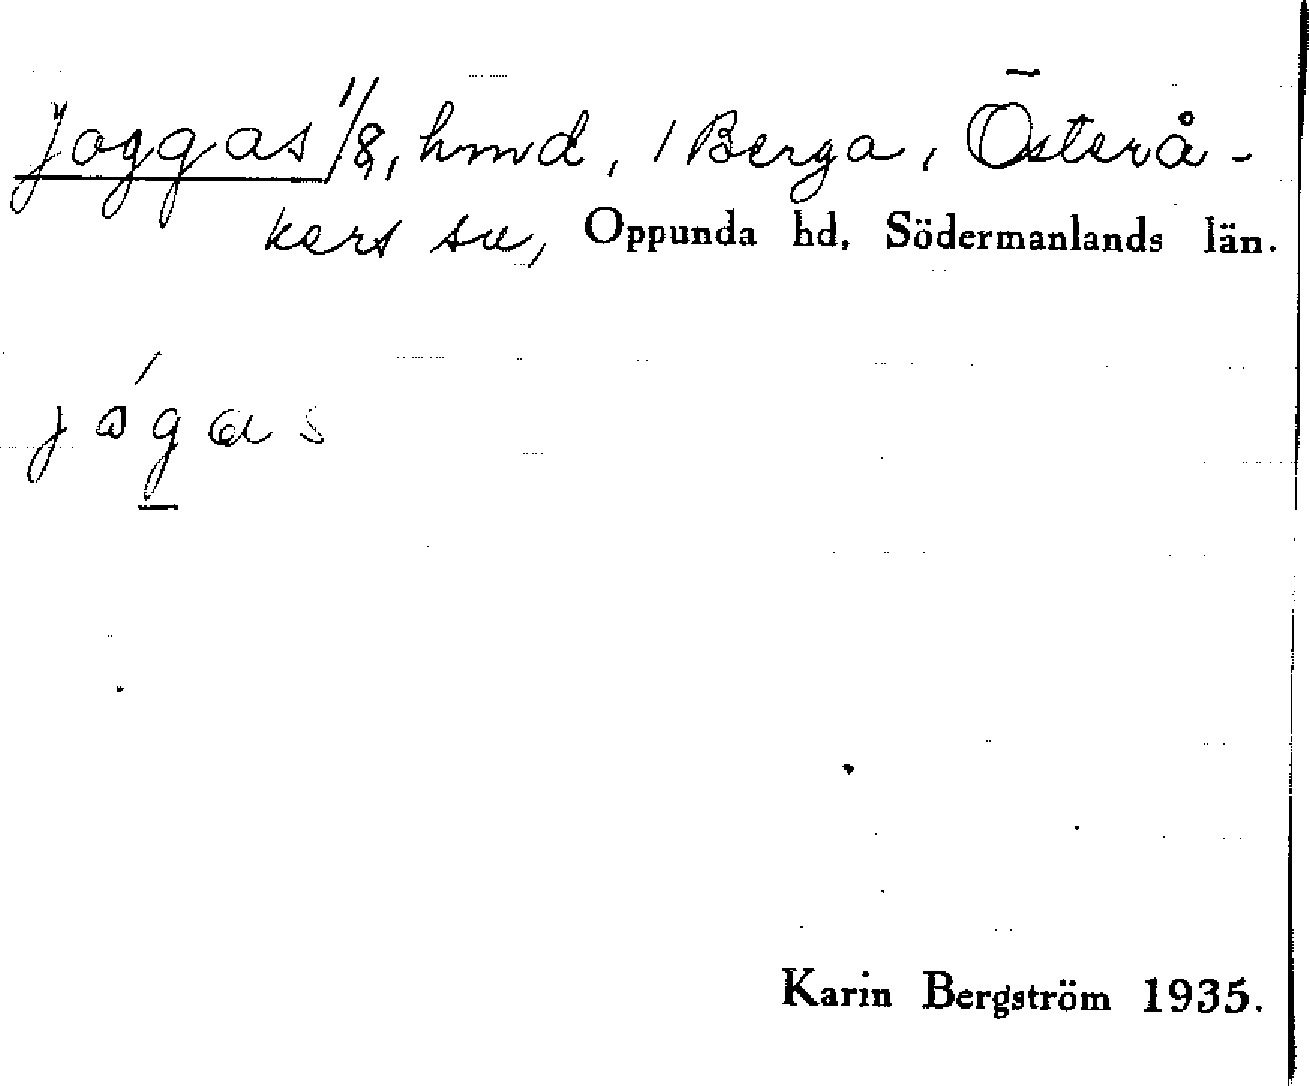 Joggas 1/8, hmd, i Berga, Österå-
kers sn, Oppunda hd, Södermanlands län.
jógas
Karin Bergström 1935.